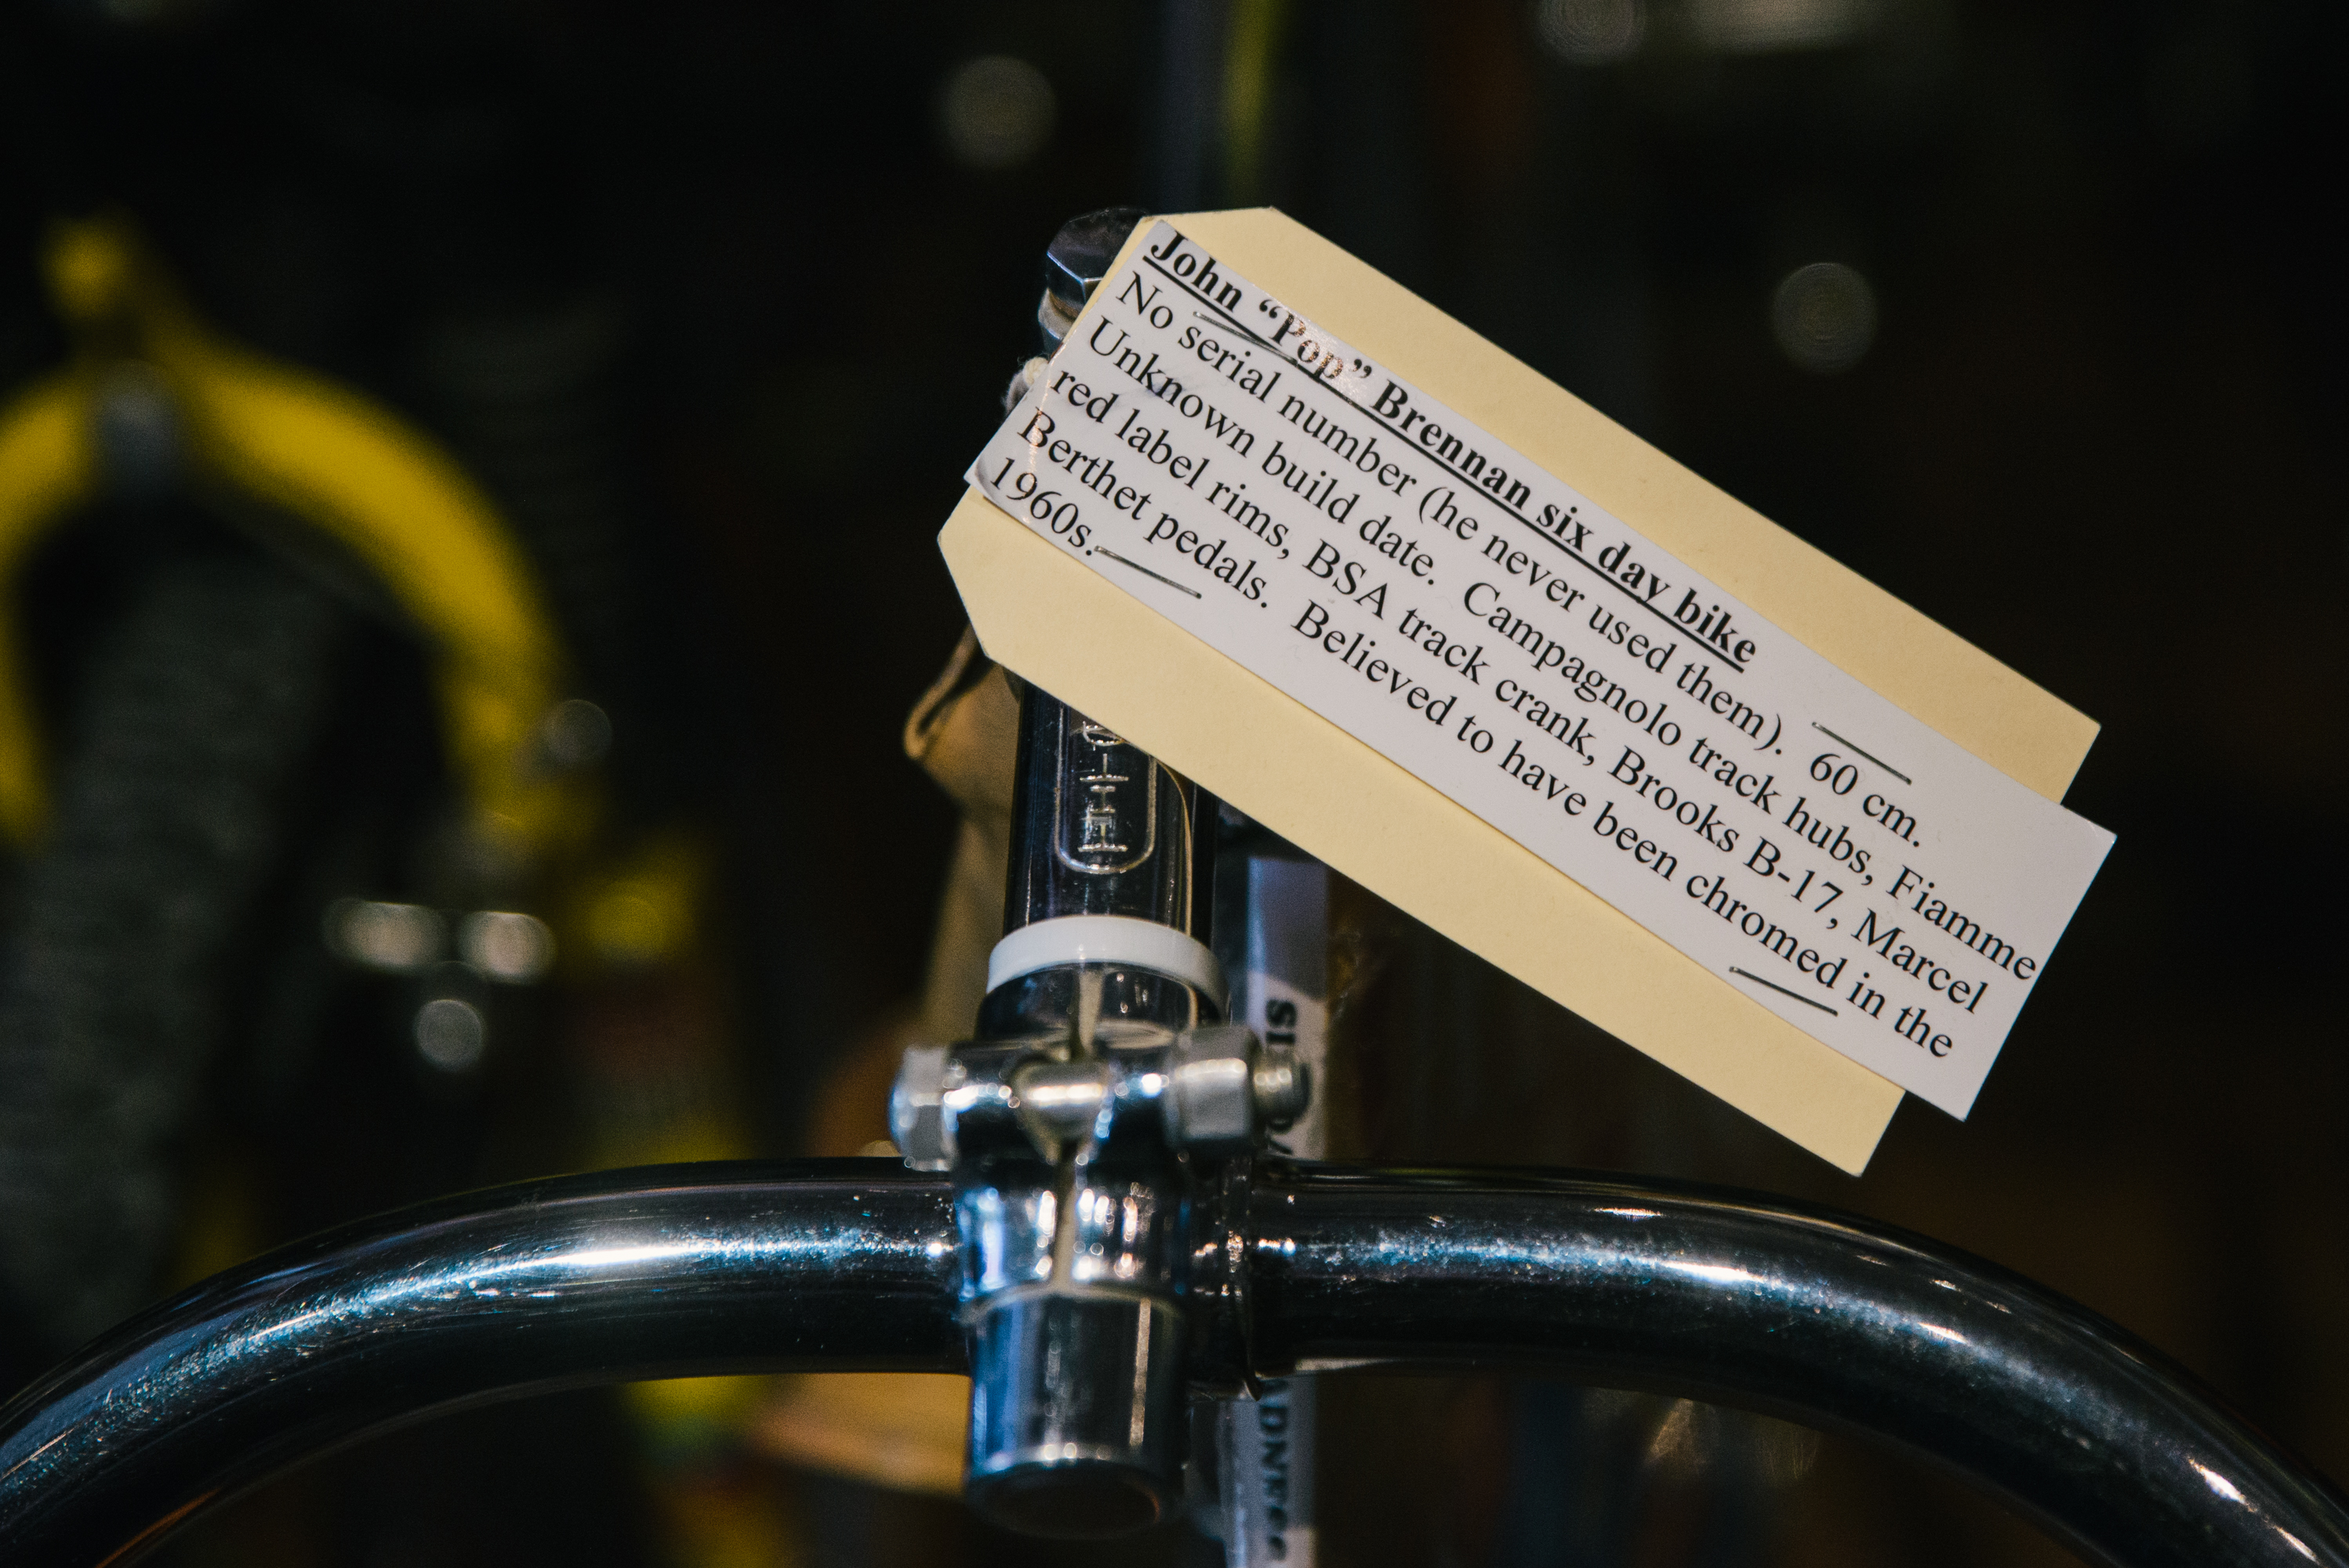 John “Pop” Brennan six day bike
No serial number (he never used them). 60 cm.
Unknown build date. Campagnolo track hubs, Fiamme
red label rims, BSA track crank, Brooks B-17, Marcel
Berthet pedals. Believed to have been chromed in the
1960s.